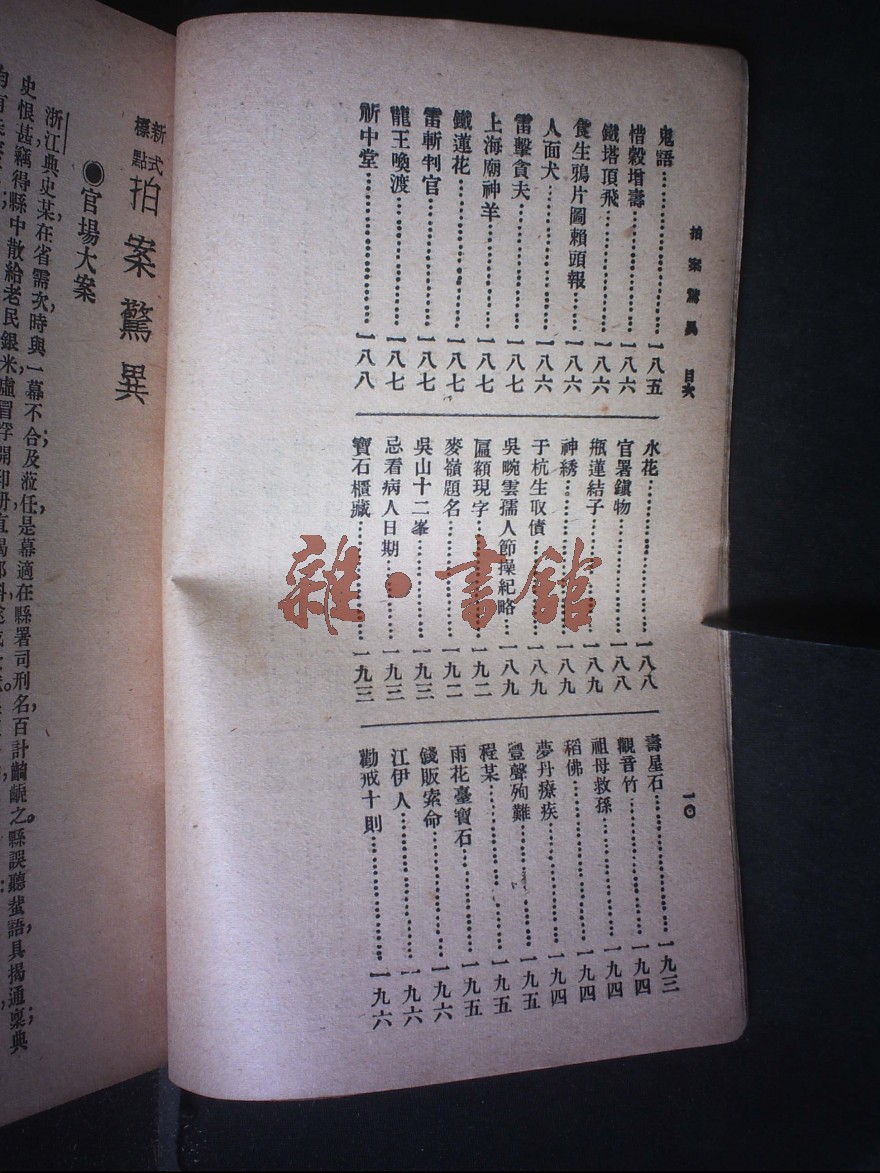 拍案驚異　目次
一〇
鬼語……一八五
惜穀增壽……一八六
鐵塔頂飛……一八六
食生鴉片圖賴顯報……一八六
人面犬……一八六
雷擊貪夫……一八七
上海廟神羊……一八七
鐵蓮花……一八七
雷斬判官……一八七
龍王喚渡……一八七
斨中堂……一八八
水花……一八八
官署鎮物……一八八
瓶蓮結子……一八九
神綉……一八九
于杭生取債……一八九
吳畹雲孺人節操紀略……一八九
匾額現字……一九二
麥嶺題名……一九二
吳山十二峯……一九三
忌看病人日期……一九三
寶石櫃藏……一九三
壽星石……一九三
觀音竹……一九四
祖母救孫……一九四
稻佛……一九四
夢丹療疾……一九四
豐聲殉難……一九五
程某……一九五
雨花臺寶石……一九五
餞販索命……一九六
江伊人……一九六
勸戒十則……一九六
新式標點　拍案驚異
●官場大案
浙江典史某在省需次時與一幕不合及蒞任是幕適在縣署司刑名百計齮齕之。縣誤聽蜚語具揭通稟典
史恨甚竊得縣中散給老民銀米虛冒浮開印册直揭部科
雜·書館